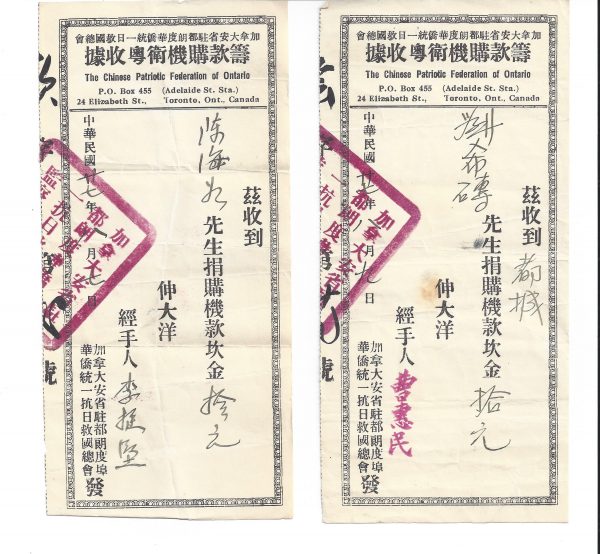 加拿大安省駐都朗度華僑統一抗日救國總會
籌款購機衛粵收據
The Chinese Patriotic Federation of Ontario
P.O. Box 455 (Adelaide St. Sta.)
24 Elizabeth St., Toronto, Ont., Canada
茲收到
陈海 先生捐購機款坎金 拾元
伸大洋
經手人 李挺堅
加拿大安省駐都朗度埠
華僑統一抗日救國總會 發
中華民國廿七年 月 日
號
加拿大安省駐都朗度華僑統一抗日救國總會
籌款購機衛粵收據
The Chinese Patriotic Federation of Ontario
P.O. Box 455 (Adelaide St. Sta.)
24 Elizabeth St., Toronto, Ont., Canada
茲收到 都城
劉希磚 先生捐購機款坎金 拾元
伸大洋
經手人 曹惠民
加拿大安省駐都朗度埠
華僑統一抗日救國總會 發
中華民國廿七年 月九日
號